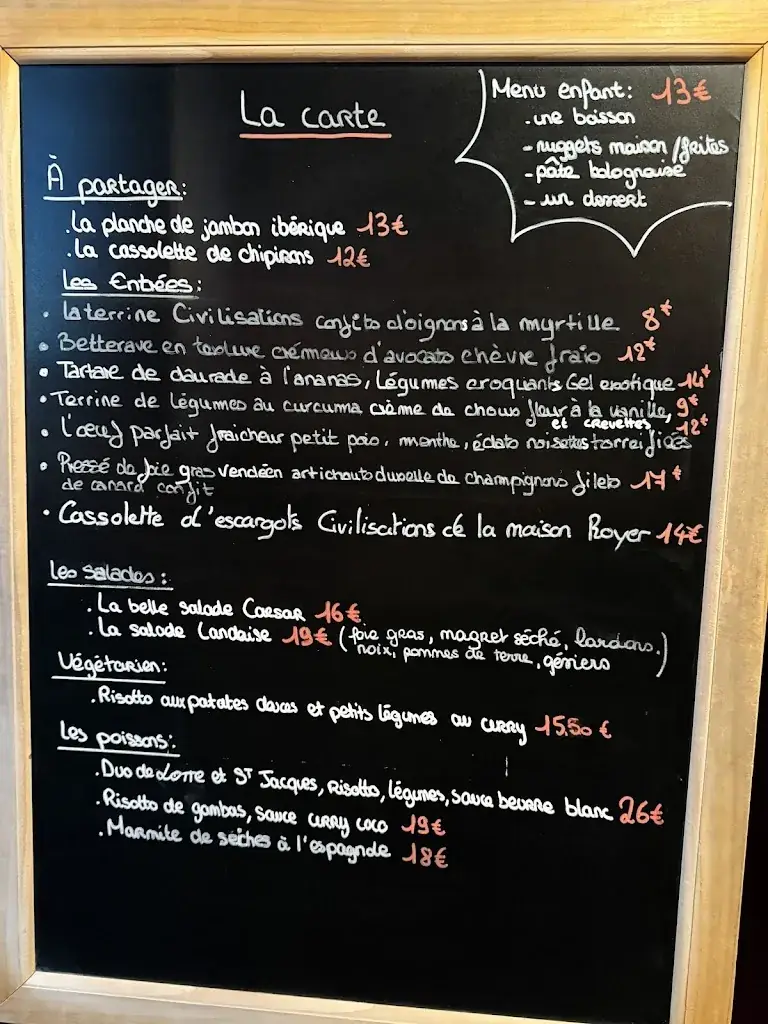 La carte
Menu enfant: 13€
. une boisson
- nuggets maison /frites
- pâte bolognaise
- un dessert
À partager:
. La planche de jambon ibérique 13€
. La cassolette de chipirons 12€
Les Entrées:
• La terrine Civilisations confits d'oignons à la myrtille 8€
• Betterave en texture crémeux d'avocats chèvre frais 12€
• Tartare de daurade à l'ananas, Légumes croquants Gel exotique 14€
• Terrine de légumes au curcuma crème de choux fleur à la vanille, 9€
et crevettes 12€
• L'œuf parfait fraicheur petit pois, menthe, éclats noisettes torréfiées
• Pressé de foie gras vendéen artichauts duxelle de champignons filets 17€
de canard confit
• Cassolette d'escargots Civilisations de la maison Royer 14€
Les Salades:
. La belle salade Caesar 16€
. La salade Landaise 19€ (foie gras, magret séché, lardons.
noix, pommes de terre, gésiers)
Végétarien:
. Risotto aux patates douces et petits légumes au curry 15.50€
Les poissons:
. Duo de Lotte et ST Jacques, Risotto, légumes, sauce beurre blanc 26€
. Risotto de gambas, sauce curry coco 19€
. Marmite de seiches à l'espagnole 18€